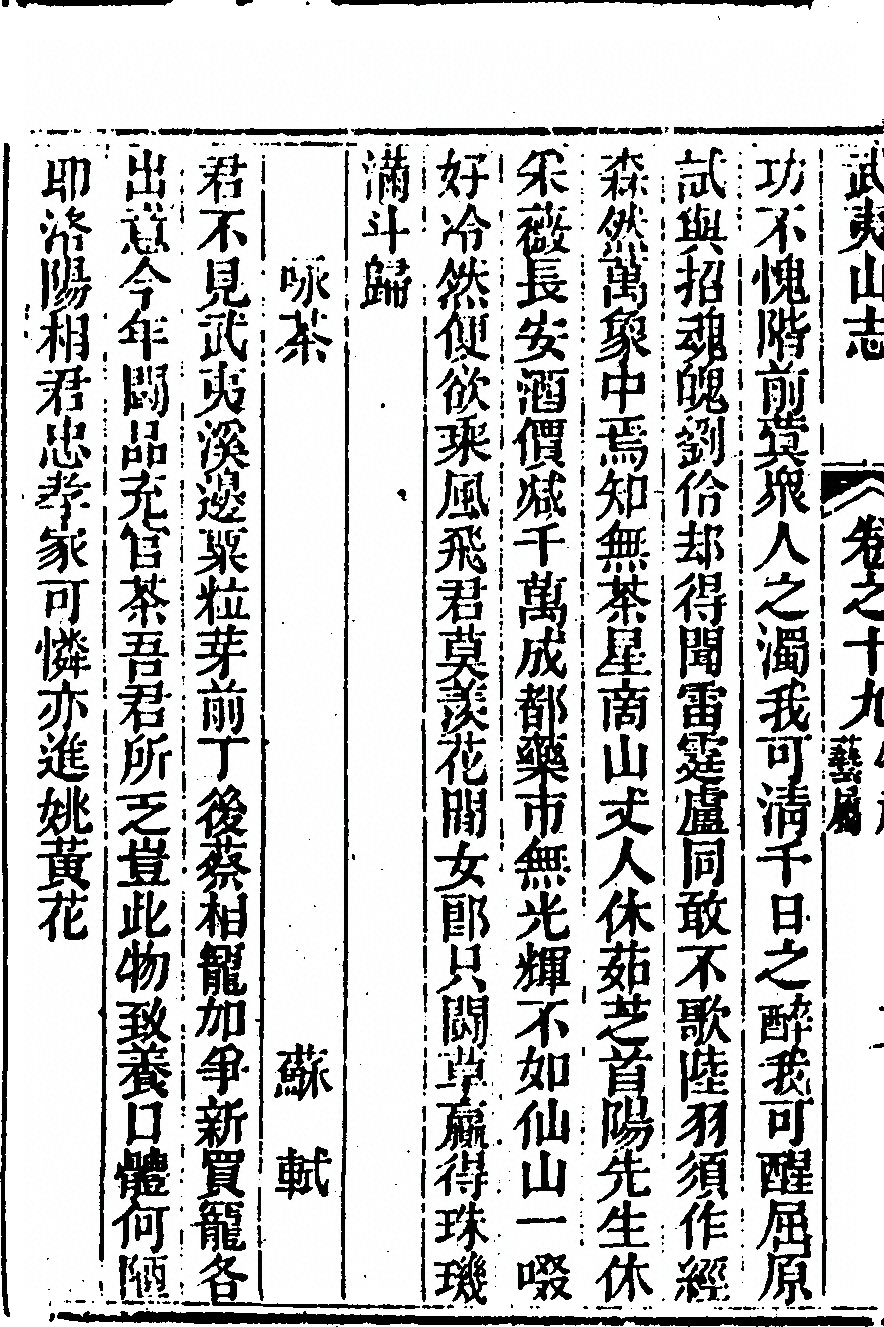 武夷山志 卷之十九 藝屬
功不愧階前蓂衆人之濁我可淸千日之醉我可醒屈原
試與招魂魄劉伶却得聞雷霆盧同敢不歌陸羽須作經
森然萬象中焉知無茶星啇山丈人休茹芝首陽先生休
采薇長安酒價减千萬成都藥市無光輝不如仙山一啜
好冷然便欲乘風飛君莫羨花間女郎只鬬草贏得珠璣
滿斗歸
咏茶 蘇軾
君不見武夷溪邊粟粒芽前丁後蔡相寵加爭新買寵各
出意今年鬬品充官茶吾君所乏豈此物致養口體何陋
耶洛陽相君忠孝家可憐亦進姚黃花